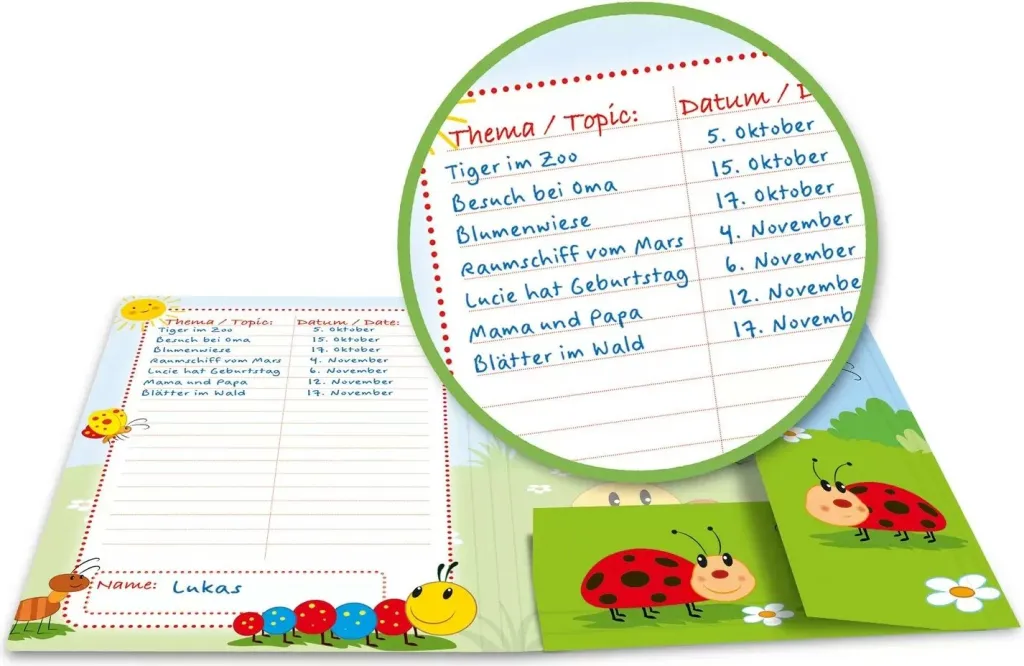 Thema / Topic: Datum / D
Tiger im Zoo 5. Oktober
Besuch bei Oma 15. Oktober
Blumenwiese 17. Oktober
Raumschiff vom Mars 4. November
Lucie hat Geburtstag 6. November
Mama und Papa 12. Novembe
Blätter im Wald 17. Novemb
Thema / Topic: Datum / Date:
Tiger im Zoo 5. Oktober
Besuch bei Oma 15. Oktober
Blumenwiese 17. Oktober
Raumschiff vom Mars 4. November
Lucie hat Geburtstag 6. November
Mama und Papa 12. November
Blätter im Wald 17. November
Name: Lukas